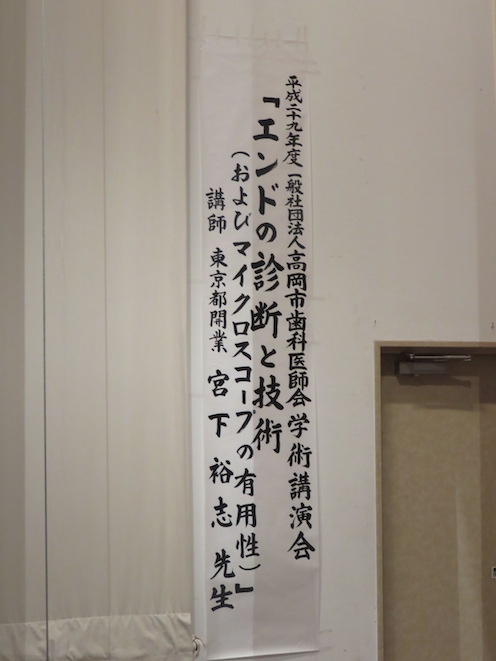 平成二十九年度 一般社団法人高岡市歯科医師会学術講演会
「エンドの診断と技術
（およびマイクロスコープの有用性）」
講師 東京都開業 宮下裕志先生